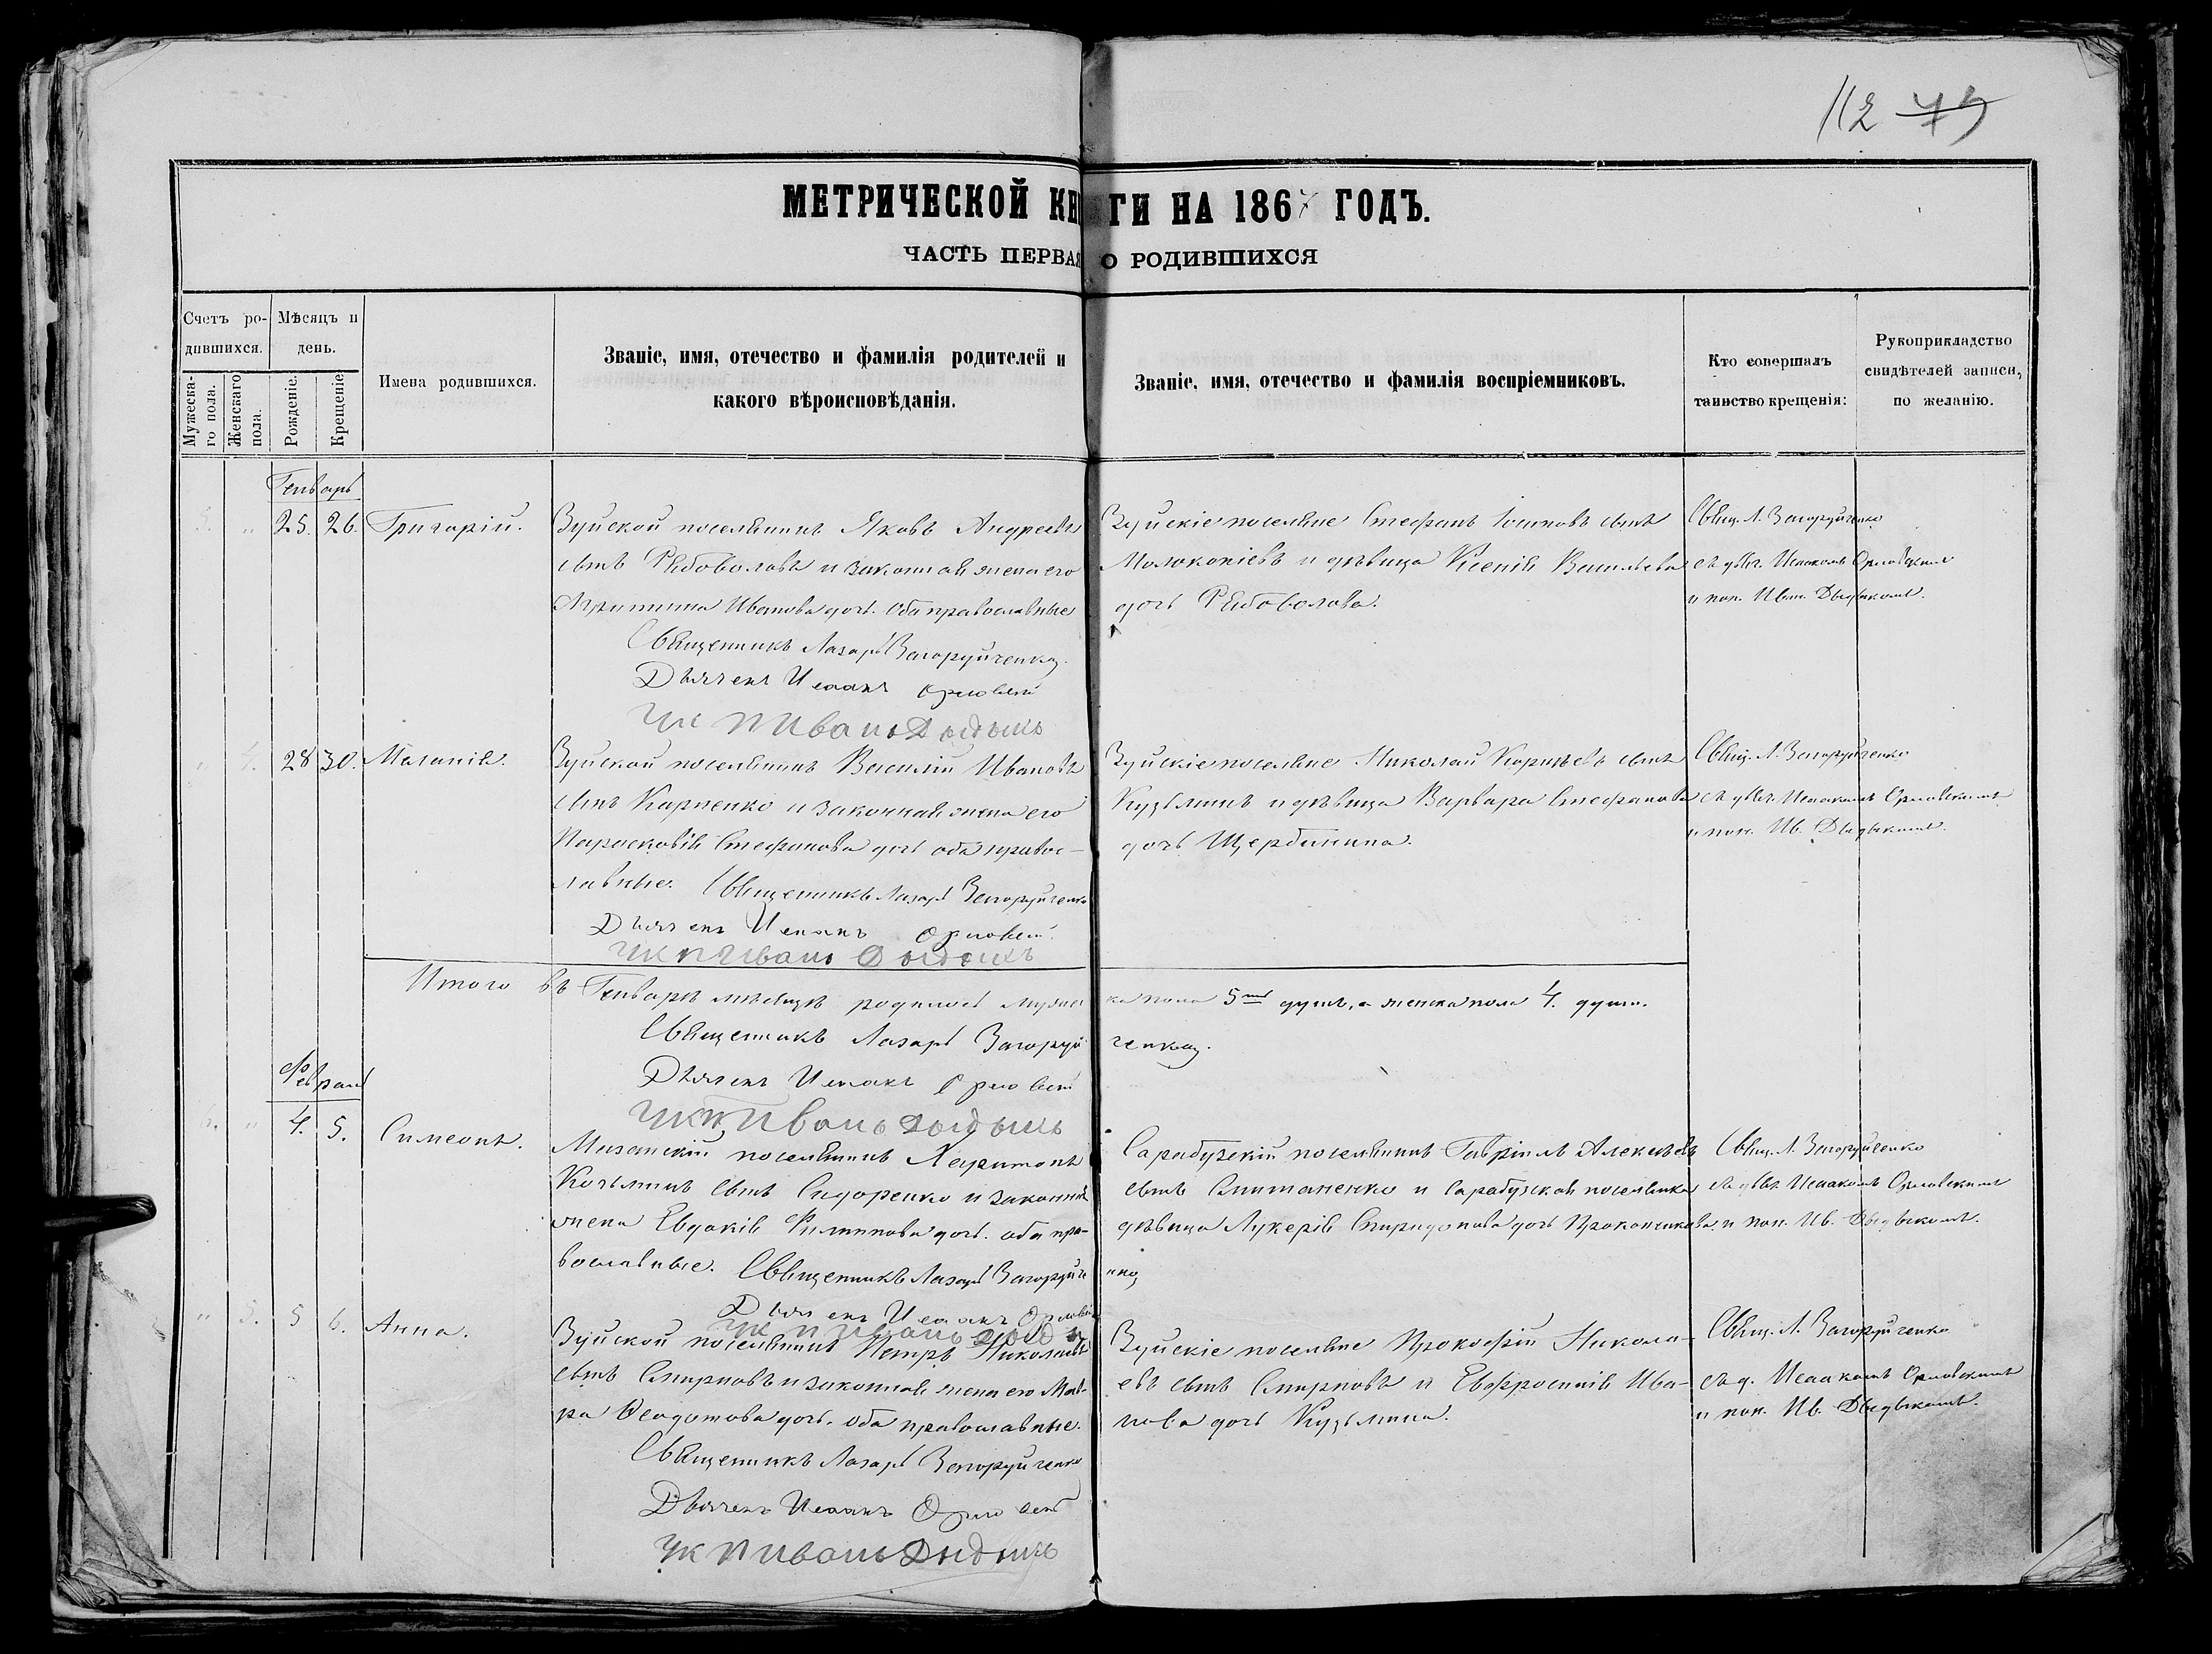 112 79
МЕТРИЧЕСКОЙ КНИГИ НА 1867 ГОДЪ.
ЧАСТЬ ПЕРВАЯ О РОДИВШИХСЯ
Счетъ ро-
дившихся.
Мужеска-
го пола.
Женскаго
пола.
Мѣсяцъ и
день.
Рожденіе.
Крещеніе
Имена родившихся.
Званіе, имя, отечество и фамилія родителей и
какого вѣроисповѣданія.
Званіе, имя, отечество и фамилія воспріемниковъ.
Кто совершалъ
таинство крещенія:
Рукоприкладство
свидѣтелей записи,
по желанію.
Генварь
5. " 25. 26. Григорій.
Зуйской поселянинъ Яковъ Андреевъ
сынъ Рябоволовъ и законная жена его
Агрипина Иванова дочь. оба православные
Священникъ Лазарь Загоруйченко
Дьячекъ Исаакъ Орловскій
Ук П Иванъ Дыдыкъ
Зуйскіе поселяне Стефанъ сынъ
Молоконіевъ и дѣвица Ксенія Васильева
дочь Рябоволова.
Свящ. Л. Загоруйченко
съ дьяч. Исаакомъ Орловскимъ
и пон. Ив. Дыдыкомъ.
" 4. 28 30. Маланія.
Зуйской поселянинъ Василій Ивановъ
сынъ Карпенко и законная жена его
Парасковія Стефанова дочь оба правос-
лавные. Священникъ Лазарь Загоруйченко
Дьячекъ Исаакъ Орловскій
Ук П Иванъ Дыдыкъ
Зуйскіе поселяне Николай Корнѣевъ сынъ
Кузьминъ и дѣвица Варвара Стефанова
дочь Щербинина.
Свящ. Л. Загоруйченко
съ дьяч. Исаакомъ Орловскимъ
и пон. Ив. Дыдыкомъ.
Итого въ Генварѣ мѣсяцѣ родилось мужеска пола 5ть душъ, а женска пола 4. души.
Священникъ Лазарь Загоруйченко
Дьячекъ Исаакъ Орловскій
Ук П Иванъ Дыдыкъ
Февраль
6. " 4. 5. Симеонъ.
Мазанскій поселянинъ Харитонъ
Козьминъ сынъ Сидоренко и законная
жена Евдокія Филиппова дочь. оба пра-
вославные. Священникъ Лазарь Загоруйченко
Дьячекъ Исаакъ Орловскій
Ук П Иванъ Дыдыкъ
Сарабузскій поселянинъ Гавріилъ Алексѣевъ
сынъ и Сарабузская поселянка
дѣвица Лукерія Спиридонова дочь
Свящ. Л. Загоруйченко
съ дьяч. Исаакомъ Орловскимъ
и пон. Ив. Дыдыкомъ.
" 5. 5 6. Анна.
Зуйской поселянинъ Петръ Николаевъ
сынъ Смирновъ и законная жена его Мав-
ра Ѳеодотова дочь. оба православные.
Священникъ Лазарь Загоруйченко
Дьячекъ Исаакъ Орловскій
Ук П Иванъ Дыдыкъ
Зуйскіе поселяне Прокофій Никола-
евъ сынъ Смирновъ и Евфросинія Ива-
нова дочь Кузьмина.
Свящ. Л. Загоруйченко
съ д. Исаакомъ Орловскимъ
и пон. Ив. Дыдыкомъ.